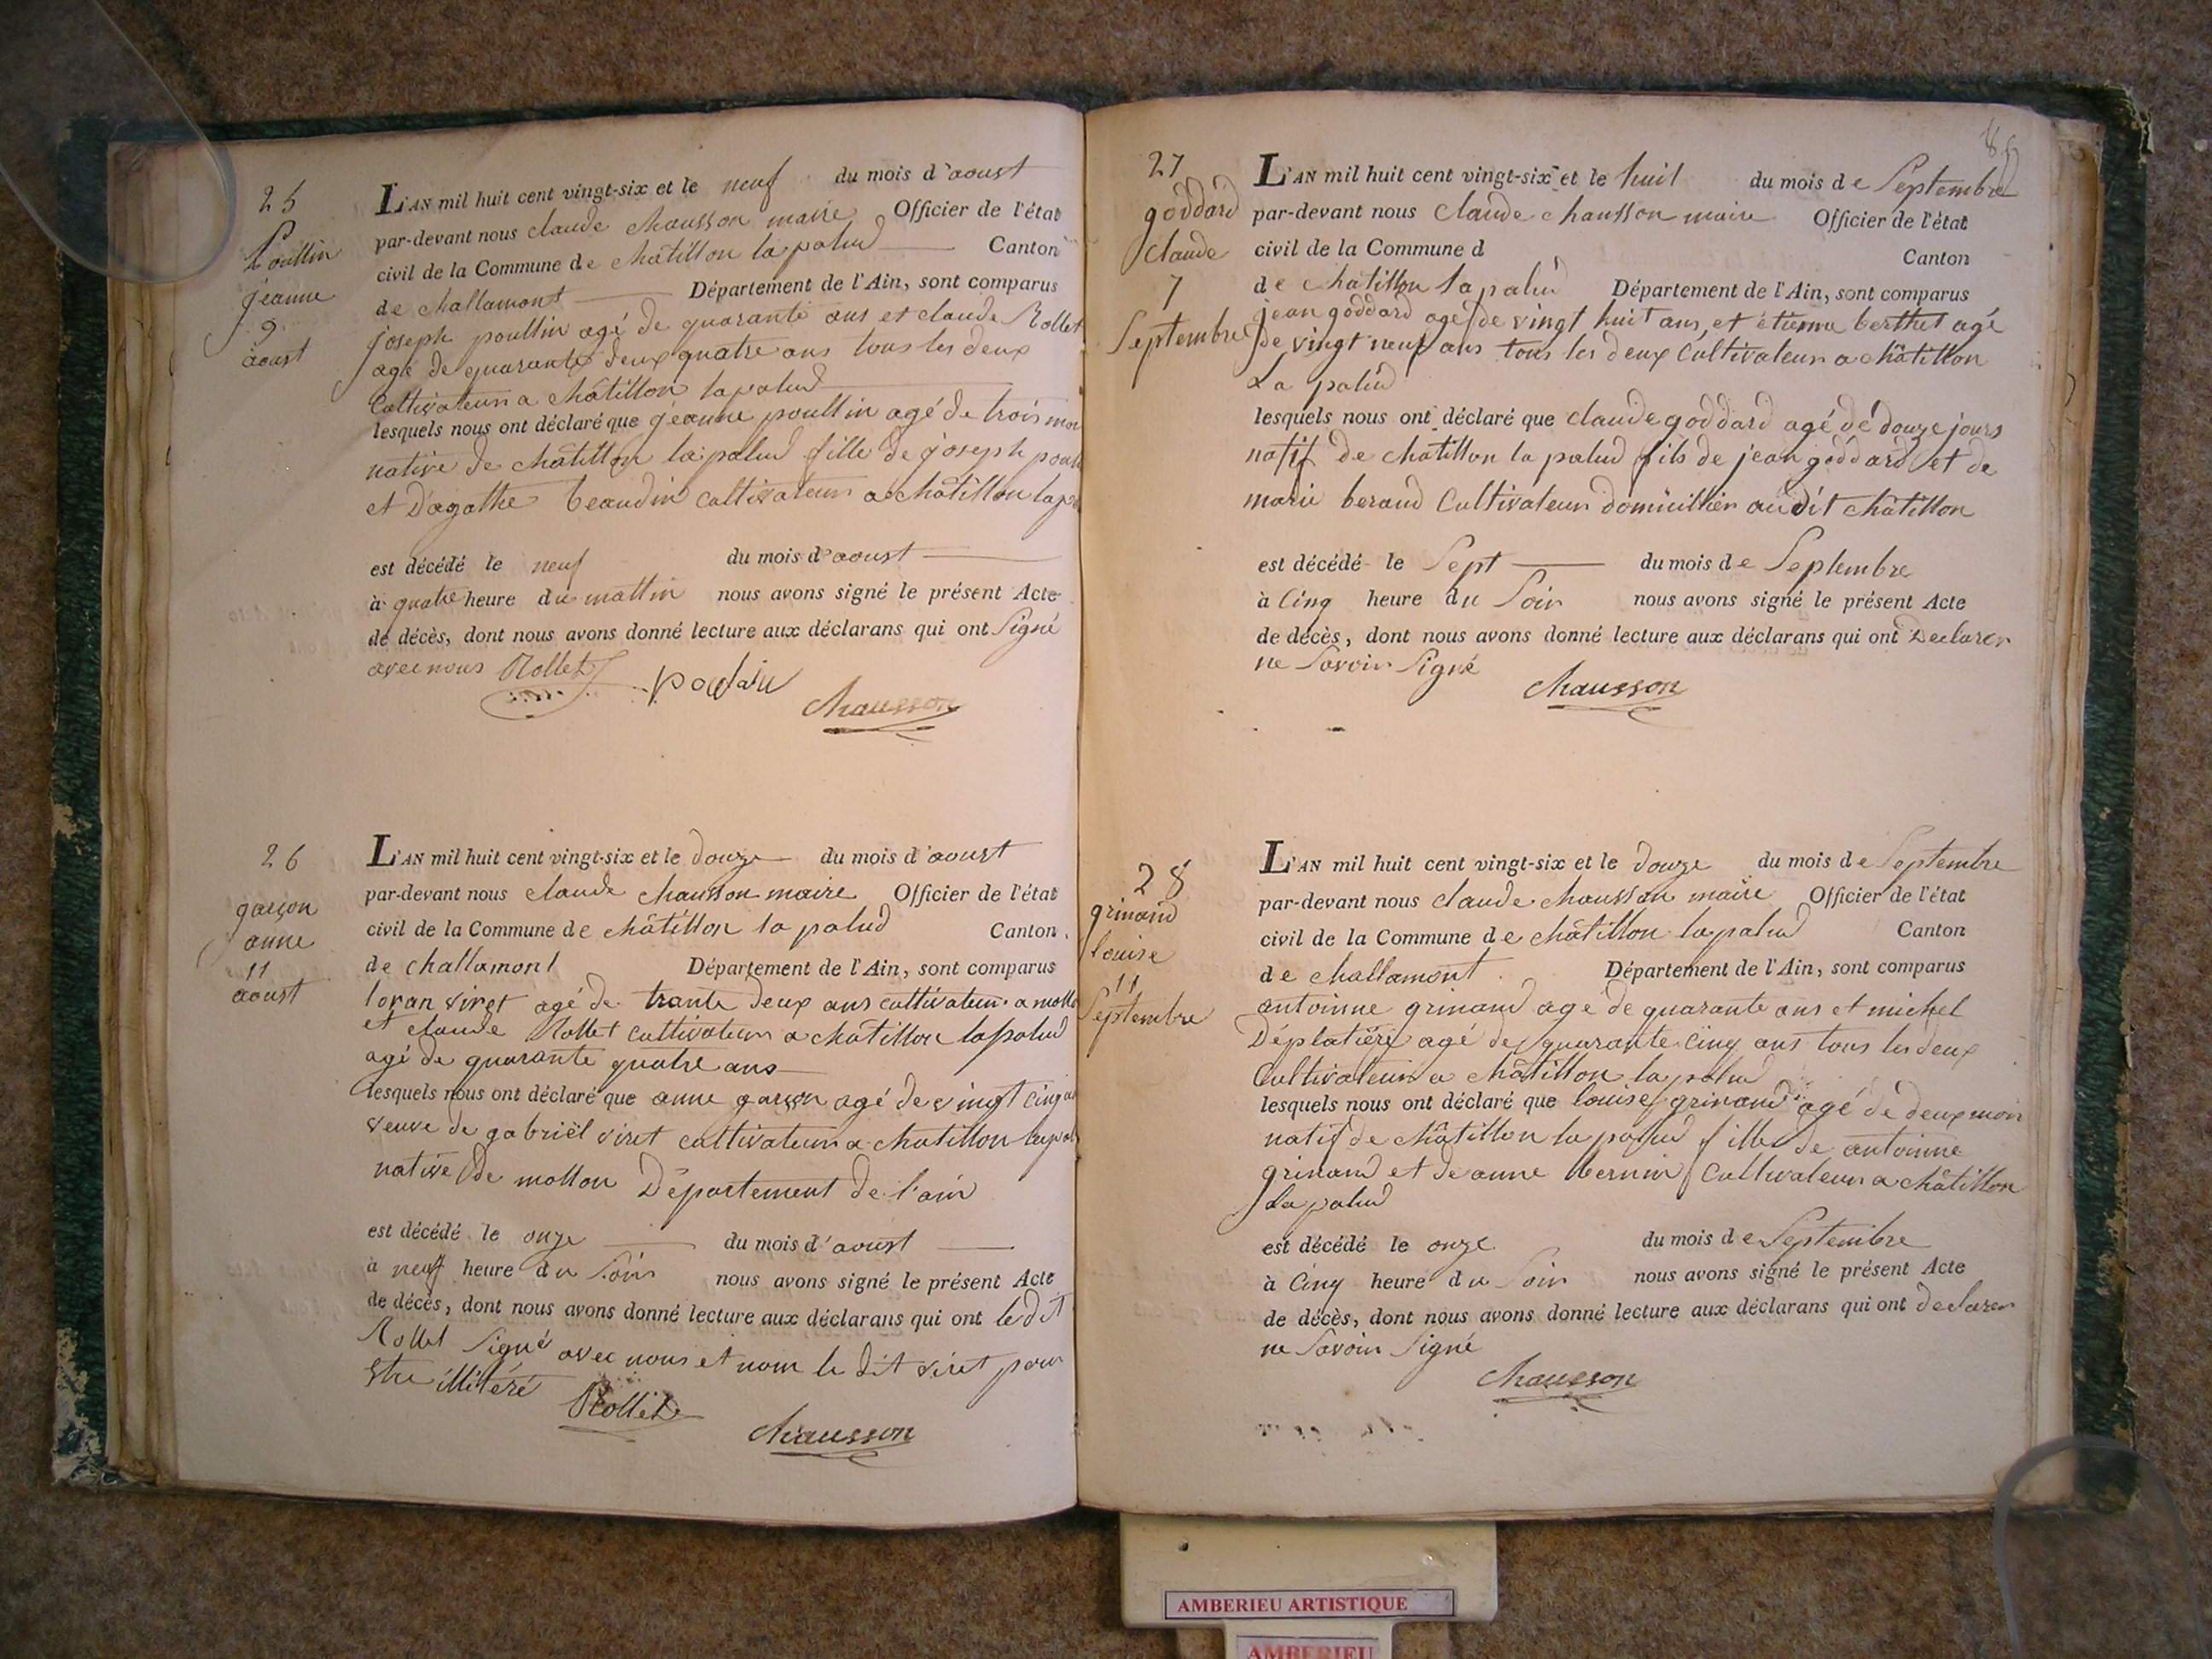 25
Poullin
jeanne
9
aoust
L'AN mil huit cent vingt-six et le neuf du mois d'aoust
par-devant nous claude chausson maire Officier de l'état
civil de la Commune de châtillon la palud Canton
de challamont Département de l'Ain, sont comparus
joseph poullin agé de quarante ans et claude Rollet
agé de quarante deux quatre ans tous les deux
Cultivateurs a châtillon la palud
lesquels nous ont déclaré que jeanne poullin agé de trois moi
native de châtillon la palud fille de joseph poull
et d'agathe beaudin cultivateurs a châtillon la pa
est décédé le neuf du mois d'aoust
à quatre heure du mattin nous avons signé le présent Acte
de décès, dont nous avons donné lecture aux déclarans qui ont Signé
avec nous Rollet
chausson
26
garçon
anne
11
aoust
L'AN mil huit cent vingt-six et le douze du mois d'aoust
par-devant nous claude chausson maire Officier de l'état
civil de la Commune de châtillon la palud Canton
de challamont Département de l'Ain, sont comparus
loran viret agé de trante deux ans cultivateur a mollo
et claude Rollet cultivateur a châtillon la palud
agé de quarante quatre ans
lesquels nous ont déclaré que anne garçon agé de vingt cinq an
veuve de gabriël viret cultivateurs a chatillon la pal
native de mollon Département de l'ain
est décédé le onze du mois d'avoust
à neuf heure du Soir nous avons signé le présent Acte
de décès, dont nous avons donné lecture aux déclarans qui ont le dit
Rollet Signé avec nous et nom le dit viret pour
stre illitéré
Rollet
chausson
27
goddard
claude
7
Septembre
L'AN mil huit cent vingt-six et le huit du mois de Septembre
par-devant nous claude chausson maire Officier de l'état
civil de la Commune d Canton
de châtillon la palud Département de l'Ain, sont comparus
jean goddard agé de vingt huit ans, et étienne berthet agé
de vingt neuf ans tous les deux Cultivateurs a châtillon
La palud
lesquels nous ont déclaré que claude goddard agé de douze jours
natif de châtillon la palud fils de jean goddard et de
marie beraud Cultivateurs domicillier au dit châtillon
est décédé le Sept du mois de Septembre
à Cinq heure du Soir nous avons signé le présent Acte
de décès, dont nous avons donné lecture aux déclarans qui ont Declarer
ne Savoir Signé
chausson
28
grinand
louise
11
Septembre
L'AN mil huit cent vingt-six et le douze du mois de Septembre
par-devant nous claude chausson maire Officier de l'état
civil de la Commune de châtillon la palud Canton
de challamont Département de l'Ain, sont comparus
antoinne grinand agé de quarante ans et michel
Déplatière agé de quarante cinq ans tous les deux
Cultivateurs a châtillon la palud
lesquels nous ont déclaré que louise grinand agé de deux mois
natif de châtillon la palud fille de antoinne
grinand et de anne bernin Cultivateurs a châtillon
la palud
est décédé le onze du mois de Septembre
à Cinq heure du Soir nous avons signé le présent Acte
de décès, dont nous avons donné lecture aux déclarans qui ont declarer
ne Savoir Signé
chausson
AMBERIEU ARTISTIQUE
AMBERIEU